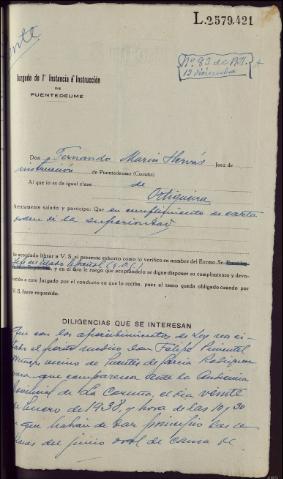 L.2579.421
Nº 83 de 1937
13 Diciembre
Juzgado de 1ª Instancia é Instrucción
DE
PUENTEDEUME
Don Fernando Marin Hervás Juez de
instrucción de Puentedeume (Coruña)
Al que lo es de igual clase de
Ortigueira
Atentamente saludo y participo: Que en cumplimiento de carta
orden de la superioridad
he acordado librar a V. S. el presente exhorto como lo verifico en nombre del Excmo. Sr.
y en el que le ruego que aceptándolo se digne disponer su cumplimiento y devo-
lución a este Juzgado por el conducto en que lo reciba, pues al tanto queda obligado cuando por
V.S. fuere requerido.
DILIGENCIAS QUE SE INTERESAN
Que con los apercibimientos de Ley se ci-
te al perito médico Don Felipe Pimentel
vecino de Puentes de Garcia Rodriguez
para que comparezca ante la Audiencia
Provincial de La Coruña, el dia veinte
de Enero de 1938, y hora de las 10,30
que habrán de dar principio las se-
siones del juicio oral de causa de